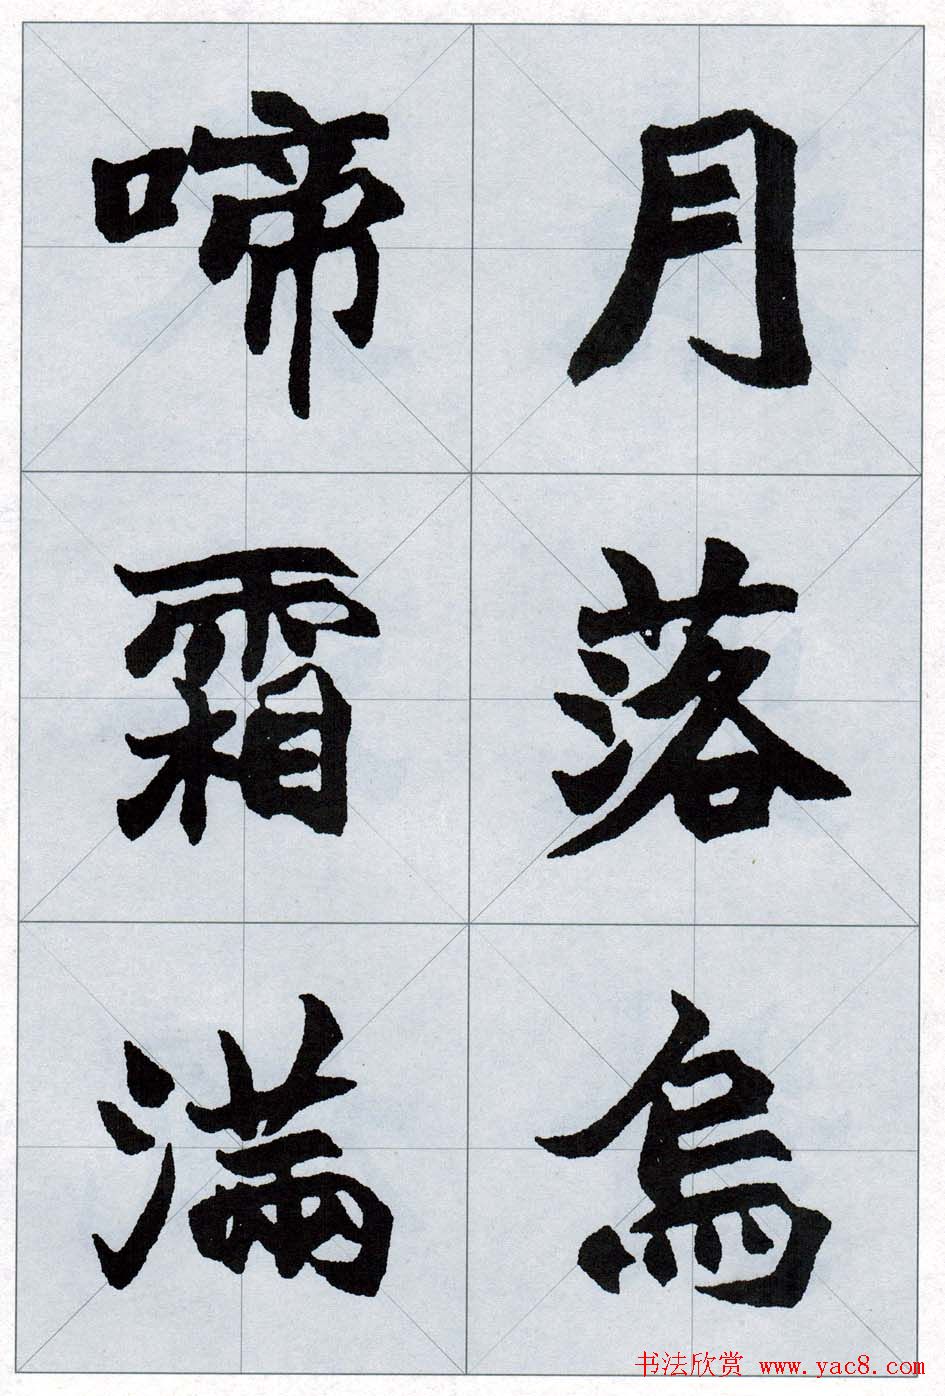 月落烏
啼霜滿
书法欣赏 www.yac8.com